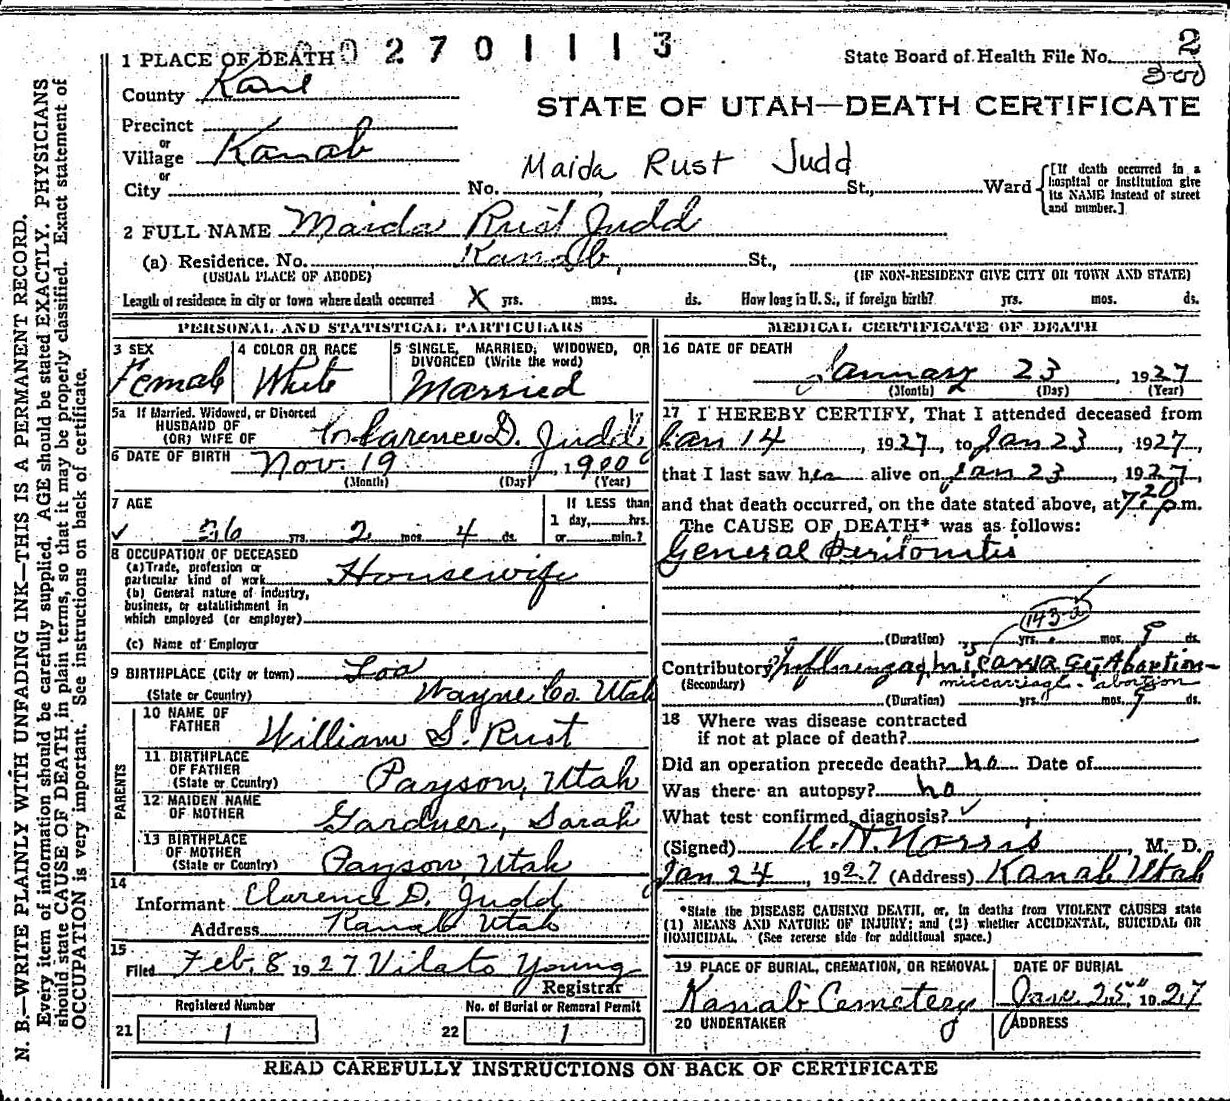 N. B.—WRITE PLAINLY WITH UNFADING INK—THIS IS A PERMANENT RECORD.
Every item of information should be carefully supplied. AGE should be stated EXACTLY. PHYSICIANS
should state CAUSE OF DEATH in plain terms, so that it may be properly classified. Exact statement of
OCCUPATION is very important. See instructions on back of certificate.
02701113
State Board of Health File No. 2
300
1 PLACE OF DEATH
County Kane
STATE OF UTAH—DEATH CERTIFICATE
Precinct
or
Village Kanab
or
Maida Rust Judd
City No. St., Ward
[If death occurred in a
hospital or institution give
its NAME instead of street
and number.]
2 FULL NAME Maida Rust Judd
(a) Residence. No. Kanab, St.,
(USUAL PLACE OF ABODE) (IF NON-RESIDENT GIVE CITY OR TOWN AND STATE)
Length of residence in city or town where death occurred X yrs. mos. ds. How long in U. S., if foreign birth? yrs. mos. ds.
PERSONAL AND STATISTICAL PARTICULARS
3 SEX
Female
4 COLOR OR RACE
White
5 SINGLE, MARRIED, WIDOWED, OR
DIVORCED (Write the word)
Married
5a If Married, Widowed, or Divorced
HUSBAND OF
(OR) WIFE OF Clarence D. Judd
6 DATE OF BIRTH Nov. 19, 1900
(Month) (Day) (Year)
7 AGE
26 yrs. 2 mos. 4 ds.
If LESS than
1 day, hrs.
or min.?
8 OCCUPATION OF DECEASED
(a) Trade, profession or
particular kind of work Housewife
(b) General nature of industry,
business, or establishment in
which employed (or employer)
(c) Name of Employer
9 BIRTHPLACE (City or town) Loa
(State or Country) Wayne Co. Utah
PARENTS
10 NAME OF
FATHER William S. Rust
11 BIRTHPLACE
OF FATHER
(State or Country) Payson, Utah
12 MAIDEN NAME
OF MOTHER Gardner, Sarah
13 BIRTHPLACE
OF MOTHER
(State or Country) Payson, Utah
14
Informant Clarence D. Judd
Address Kanab Utah
15
Filed Feb. 8 1927 Vilato Young
Registrar
Registered Number
21 1
No. of Burial or Removal Permit
22 1
MEDICAL CERTIFICATE OF DEATH
16 DATE OF DEATH
January 23, 1927
(Month) (Day) (Year)
17 I HEREBY CERTIFY, That I attended deceased from
Jan 14, 1927, to Jan 23, 1927,
that I last saw her alive on Jan 23, 1927,
and that death occurred, on the date stated above, at 7:20 p.m.
The CAUSE OF DEATH* was as follows:
General Peritonitis
143-a
(Duration) yrs. mos. 9 ds.
Contributory Influenza, miscarriage Abortion
(Secondary) miscarriage - abortion
(Duration) yrs. mos. 9 ds.
18 Where was disease contracted
if not at place of death?
Did an operation precede death? no Date of
Was there an autopsy? no
What test confirmed diagnosis? ✓
(Signed) Norris, M. D.
Jan 24, 1927 (Address) Kanab Utah
*State the DISEASE CAUSING DEATH, or, in deaths from VIOLENT CAUSES state
(1) MEANS AND NATURE OF INJURY; and (2) whether ACCIDENTAL, SUICIDAL OR
HOMICIDAL. (See reverse side for additional space.)
19 PLACE OF BURIAL, CREMATION, OR REMOVAL
Kanab Cemetery
DATE OF BURIAL
Jan. 25" 1927
20 UNDERTAKER
ADDRESS
READ CAREFULLY INSTRUCTIONS ON BACK OF CERTIFICATE